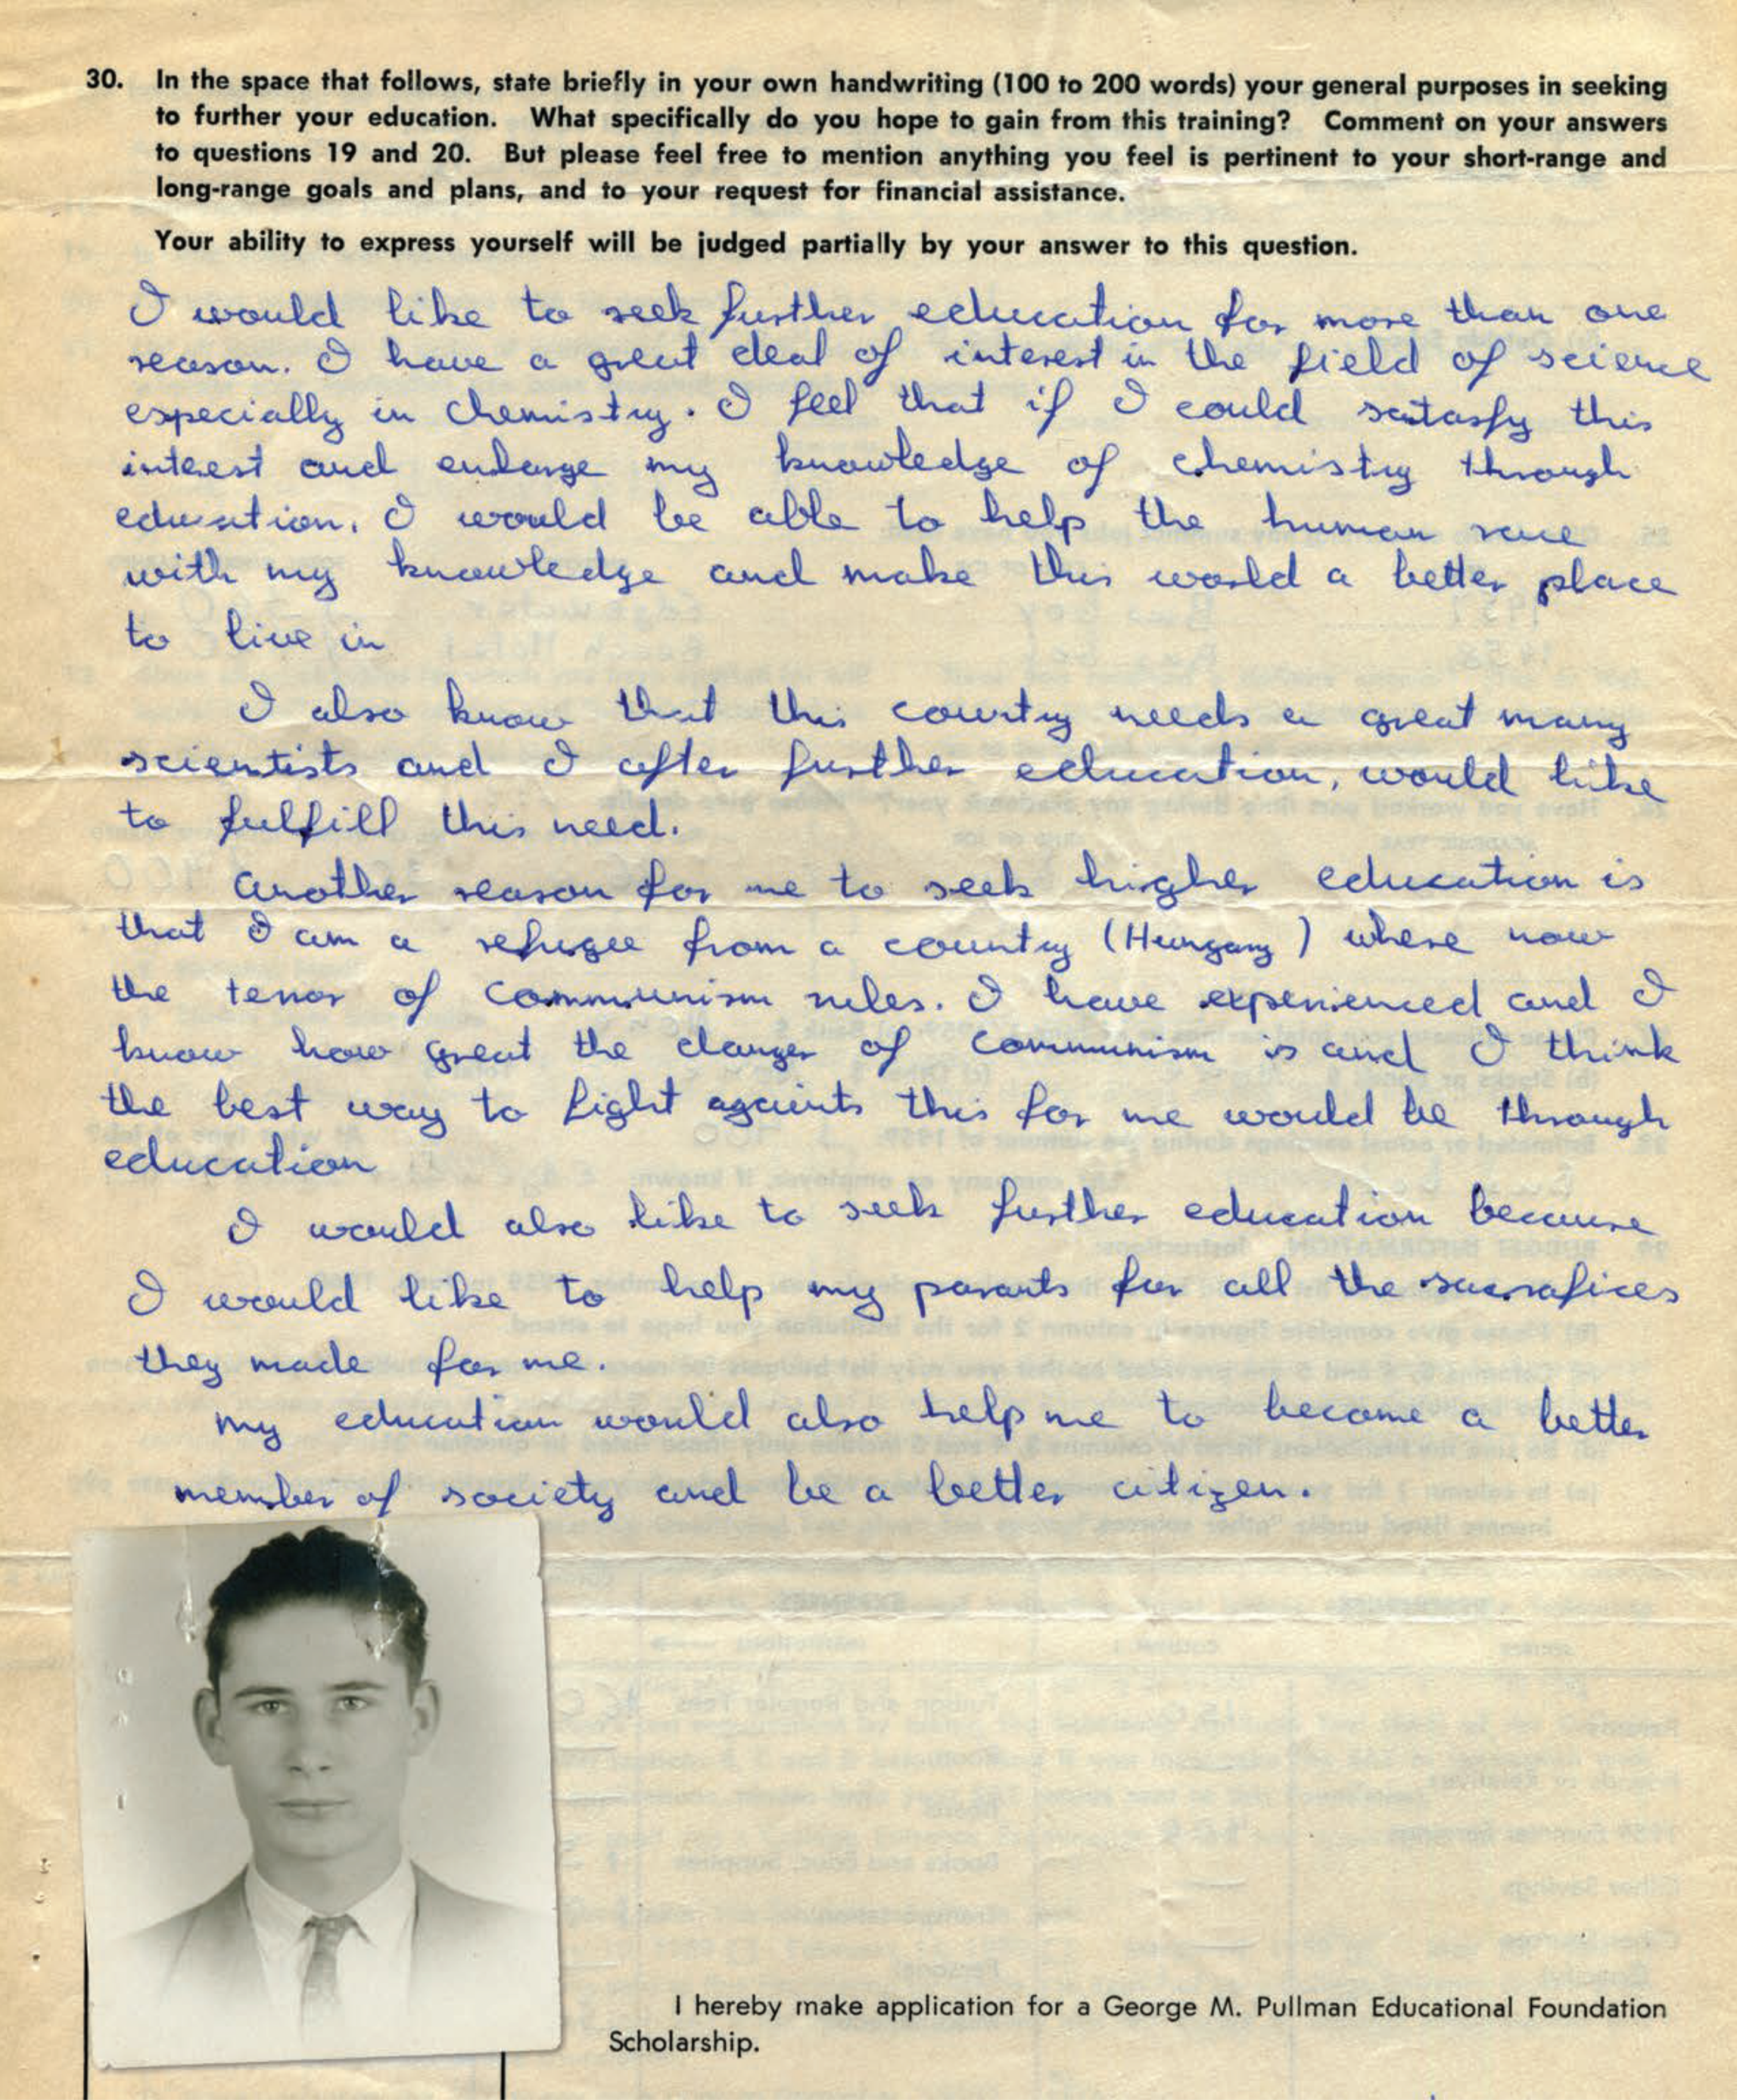 30. In the space that follows, state briefly in your own handwriting (100 to 200 words) your general purposes in seeking
to further your education. What specifically do you hope to gain from this training? Comment on your answers
to questions 19 and 20. But please feel free to mention anything you feel is pertinent to your short-range and
long-range goals and plans, and to your request for financial assistance.
Your ability to express yourself will be judged partially by your answer to this question.
I would like to seek further education for more than one
reason. I have a great deal of interest in the field of science
especially in chemistry. I feel that if I could satasfy this
interest and enlarge my knowledge of chemistry through
education, I would be able to help the human race
with my knowledge and make this world a better place
to live in
I also know that this country needs a great many
scientists and I after further education, would like
to fulfill this need.
Another reason for me to seek higher education is
that I am a refugee from a country (Hungary) where now
the terror of Communism rules. I have experienced and I
know how great the danger of Communism is and I think
the best way to fight againts this for me would be through
education
I would also like to seek further education because
I would like to help my parants for all the sacrafices
they made for me.
My education would also help me to become a better
member of society and be a better citizen.
I hereby make application for a George M. Pullman Educational Foundation
Scholarship.